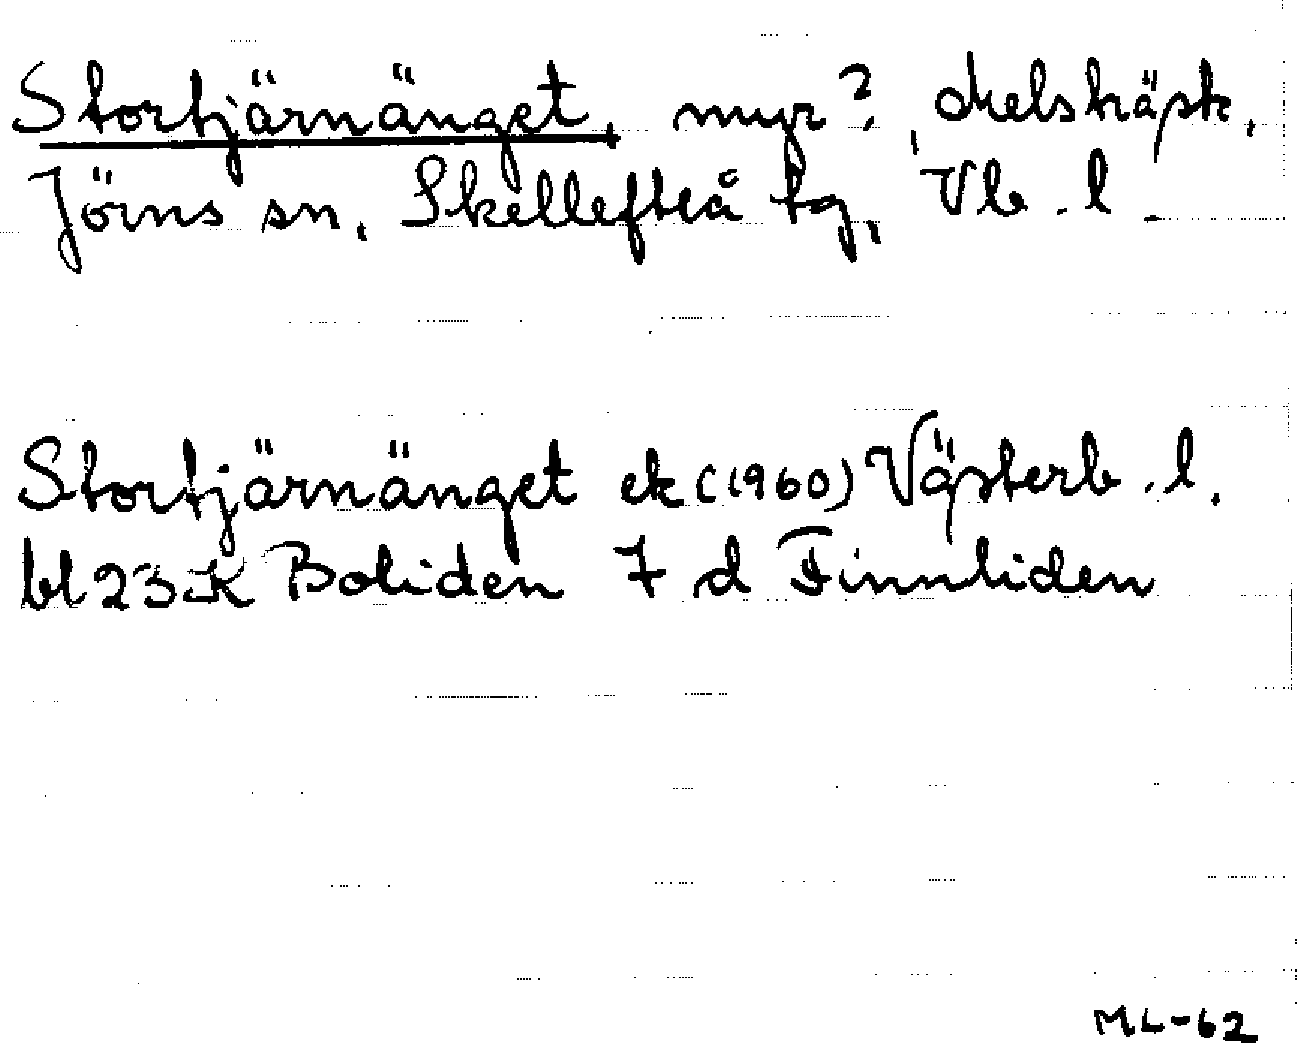 Stortjärnänget, myr?, Melsträsk,
Jörns sn, Skellefteå tg, Vb. l.
Stortjärnänget ek (1960) Västerb. l.
bl 23 K Boliden 7 d Finnliden
ML-62